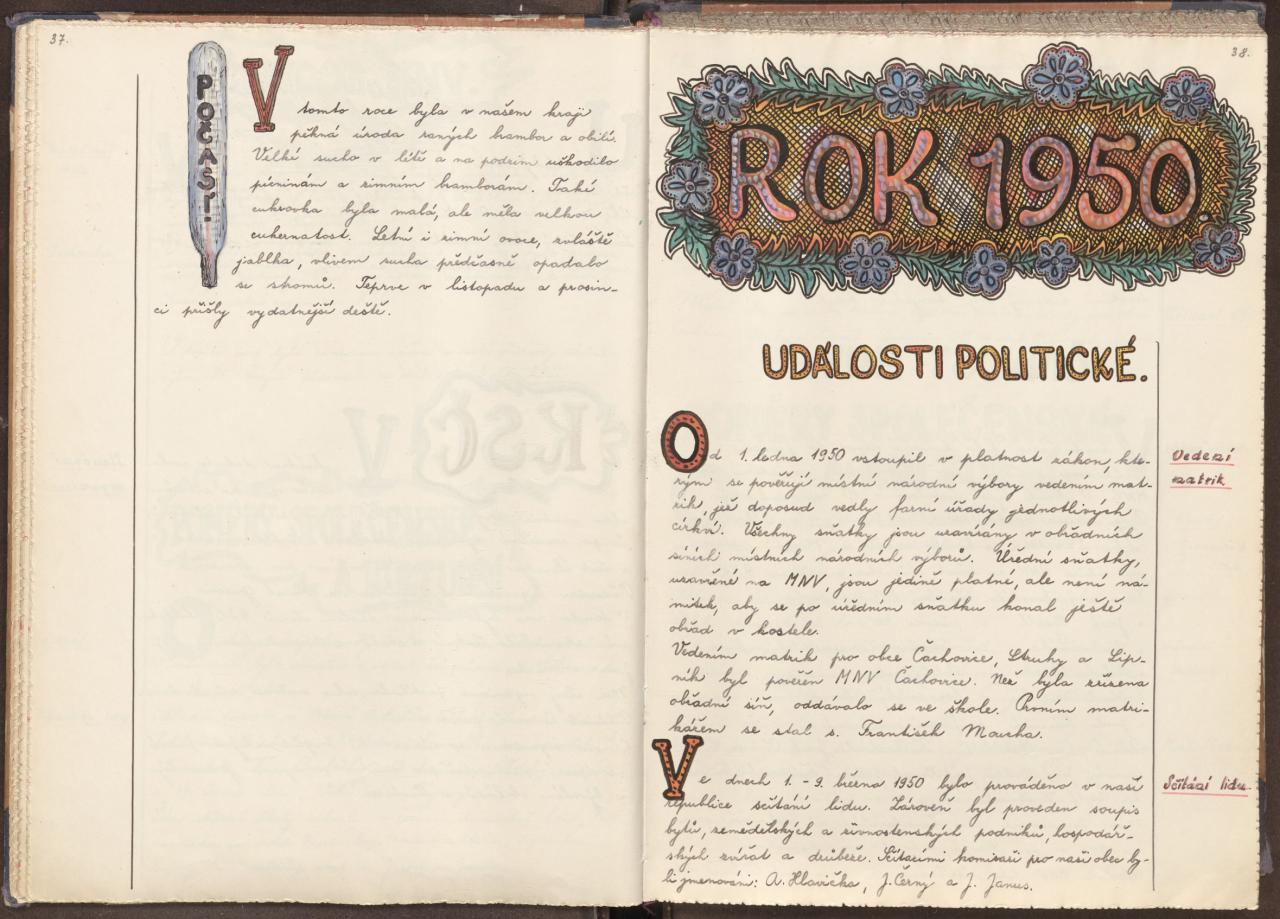 37.
POČASÍ.
V tomto roce byla v našem kraji
pěkná úroda raných brambor a obilí.
Velké sucho v létě a na podzim uškodilo
pícninám a zimním bramborám. Také
cukrovka byla malá, ale měla velkou
cukernatost. Letní i zimní ovoce, zvláště
jablka, vlivem sucha předčasně opadalo
se stromů. Teprve v listopadu a prosin-
ci přišly vydatnější deště.
38.
ROK 1950.
UDÁLOSTI POLITICKÉ.
Od 1. ledna 1950 vstoupil v platnost zákon, kte-
rým se pověřují místní národní výbory vedením mat-
rik, jež doposud vedly farní úřady jednotlivých
církví. Všechny sňatky jsou uzavírány v obřadních
síních místních národních výborů. Úřední sňatky,
uzavřené na MNV, jsou jedině platné, ale není ná-
mitek, aby se po úředním sňatku konal ještě
obřad v kostele.
Vedením matrik pro obce Čachovice, Struhy a Lip-
ník byl pověřen MNV Čachovice. Než byla zřízena
obřadní síň, oddávalo se ve škole. Prvním matri-
kářem se stal s. František Moucha.
Vedení
matrik
Ve dnech 1. - 9. března 1950 bylo prováděno v naší
republice sčítání lidu. Zároveň byl proveden soupis
bytů, zemědělských a živnostenských podniků, hospodář-
ských zvířat a drůbeže. Sčítacími komisaři pro naši obec by-
li jmenováni: A. Hlavička, J. Černý a J. Janus.
Sčítání lidu